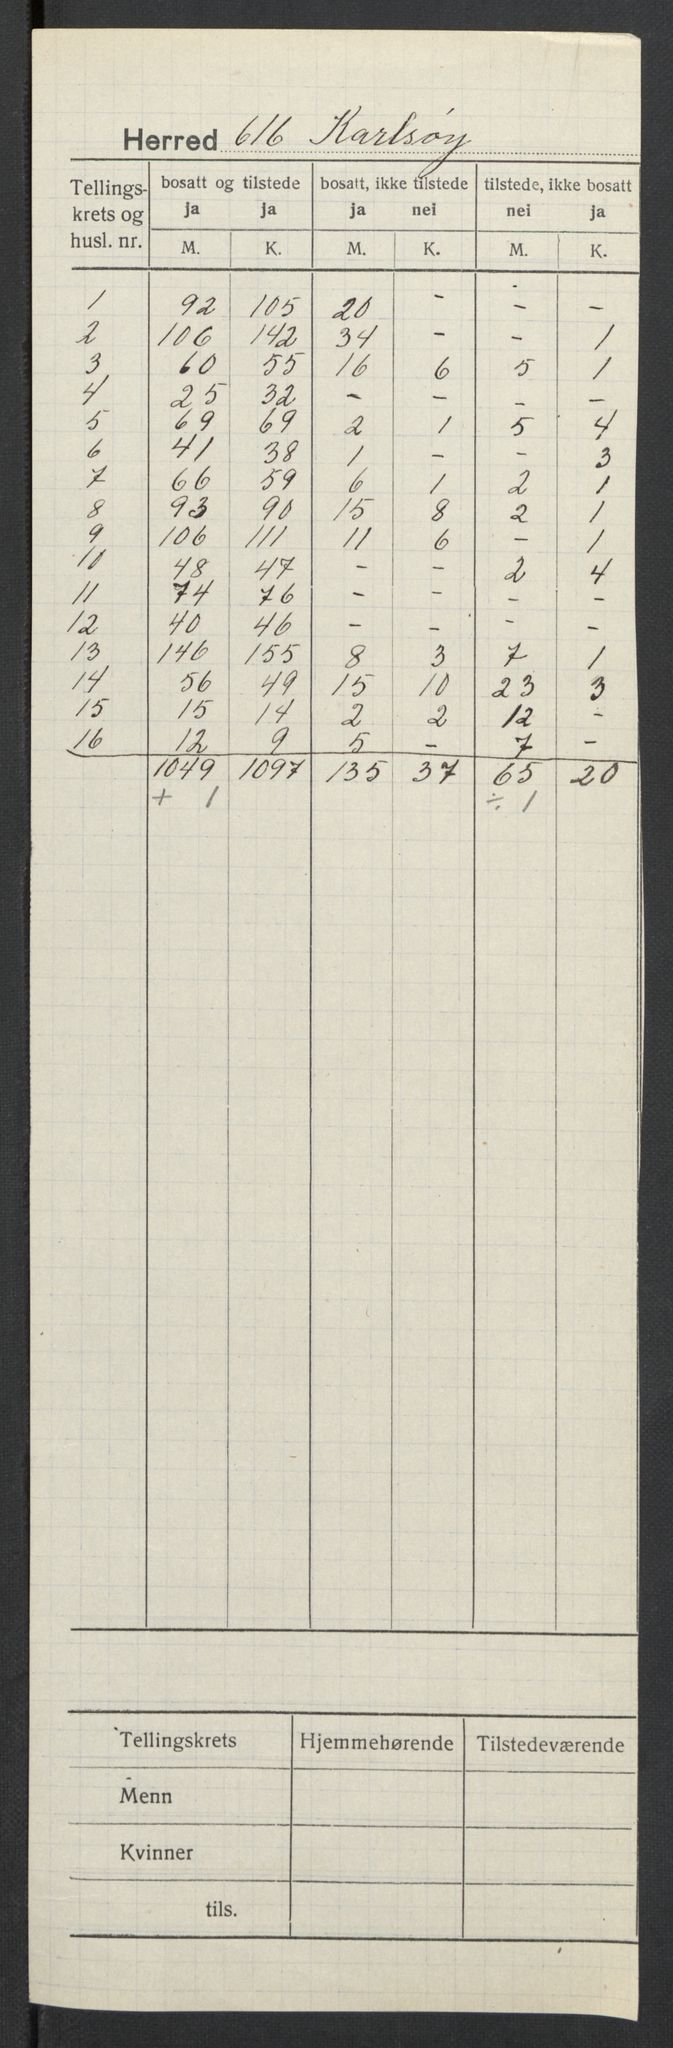 Herred 616 Karlsøy
Tellings- krets og husl. nr. bosatt og tilstede bosatt, ikke tilstede tilstede, ikke bosatt
ja ja ja nei nei ja
M. K. M. K. M. K.
1 92 105 20 - - -
2 106 142 34 - - 1
3 60 55 16 6 5 1
4 25 32 - - - -
5 69 69 2 1 5 4
6 41 38 1 - - 3
7 66 59 6 1 2 1
8 93 90 15 8 2 1
9 106 111 11 6 - 1
10 48 47 - - 2 4
11 74 76 - - - -
12 40 46 - - - -
13 146 155 8 3 7 1
14 56 49 15 10 23 3
15 15 14 2 2 12 -
16 12 9 5 - 7 -
1049 1097 135 37 65 20
+ 1 ÷ 1
Tellingskrets Hjemmehørende Tilstedeværende
Menn
Kvinner
tils.